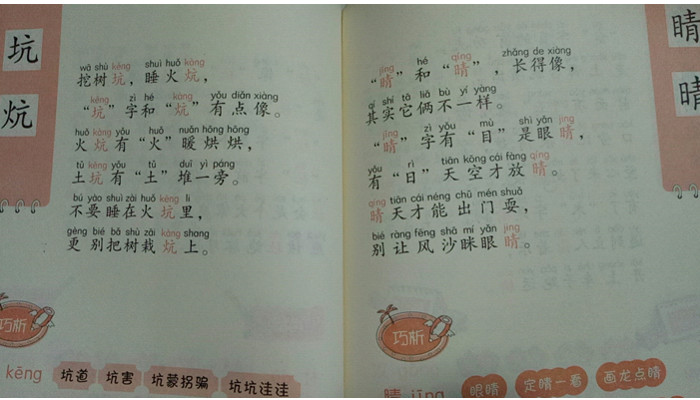 坑
炕
wā shù kēng, shuì huǒ kàng
挖树坑，睡火炕，
kēng zì hé kàng yǒu diǎn xiàng
“坑”字和“炕”有点像。
huǒ kàng yǒu huǒ nuǎn hōng hōng
火炕有“火”暖烘烘，
tǔ kēng yǒu tǔ duī yì páng
土坑有“土”堆一旁。
bú yào shuì zài huǒ kēng li
不要睡在火坑里，
gèng bié bǎ shù zāi kàng shang
更别把树栽炕上。
巧析
kēng 坑道 坑害 坑蒙拐骗 坑坑洼洼
睛
晴
jīng hé qíng zhǎng de xiàng
“睛”和“晴”，长得像，
qí shí tā liǎ bù yí yàng
其实它俩不一样。
jīng zì yǒu mù shì yǎn jing
“睛”字有“目”是眼睛，
yǒu rì tiān kōng cái fàng qíng
有“日”天空才放晴。
qíng tiān cái néng chū mén shuǎ
晴天才能出门耍，
bié ràng fēng shā mí yǎn jing
别让风沙眯眼睛。
巧析
睛 jīng 眼睛 定睛一看 画龙点睛